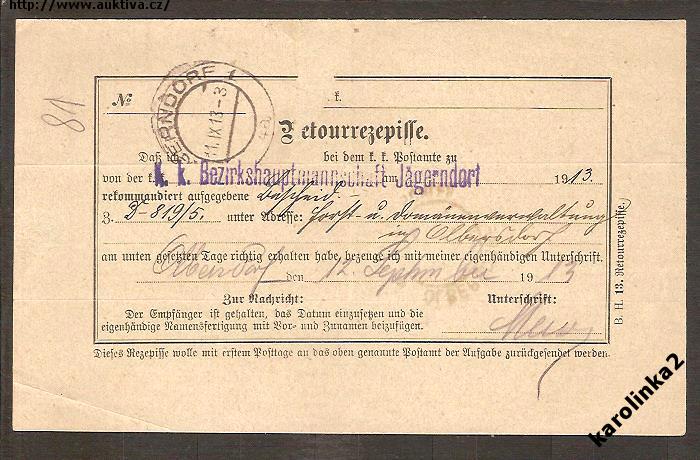 http://www.auktiva.cz/
81
№ k.
JÄGERNDORF 1
11.IX.13-3
Retourrezepisse.
Daß ich bei dem k. k. Postamte zu
von der k. k. Bezirkshauptmannschaft Jägerndorf am 1913.
rekommandiert aufgegebene Bescheid
3. B-819/5. unter Adresse: Forst- u. Domänenverwaltung
in Olbersdorf
am unten gesetzten Tage richtig erhalten habe, bezeuge ich mit meiner eigenhändigen Unterschrift.
Olbersdorf den 12. September 1913
Zur Nachricht: Unterschrift:
Der Empfänger ist gehalten, das Datum einzusetzen und die
eigenhändige Namensfertigung mit Vor- und Zunamen beizufügen.
Dieses Rezepisse wolle mit erstem Posttage an das oben genannte Postamt der Aufgabe zurückgesendet werden.
B. H. 13. Retourrezepisse.
karolinka2